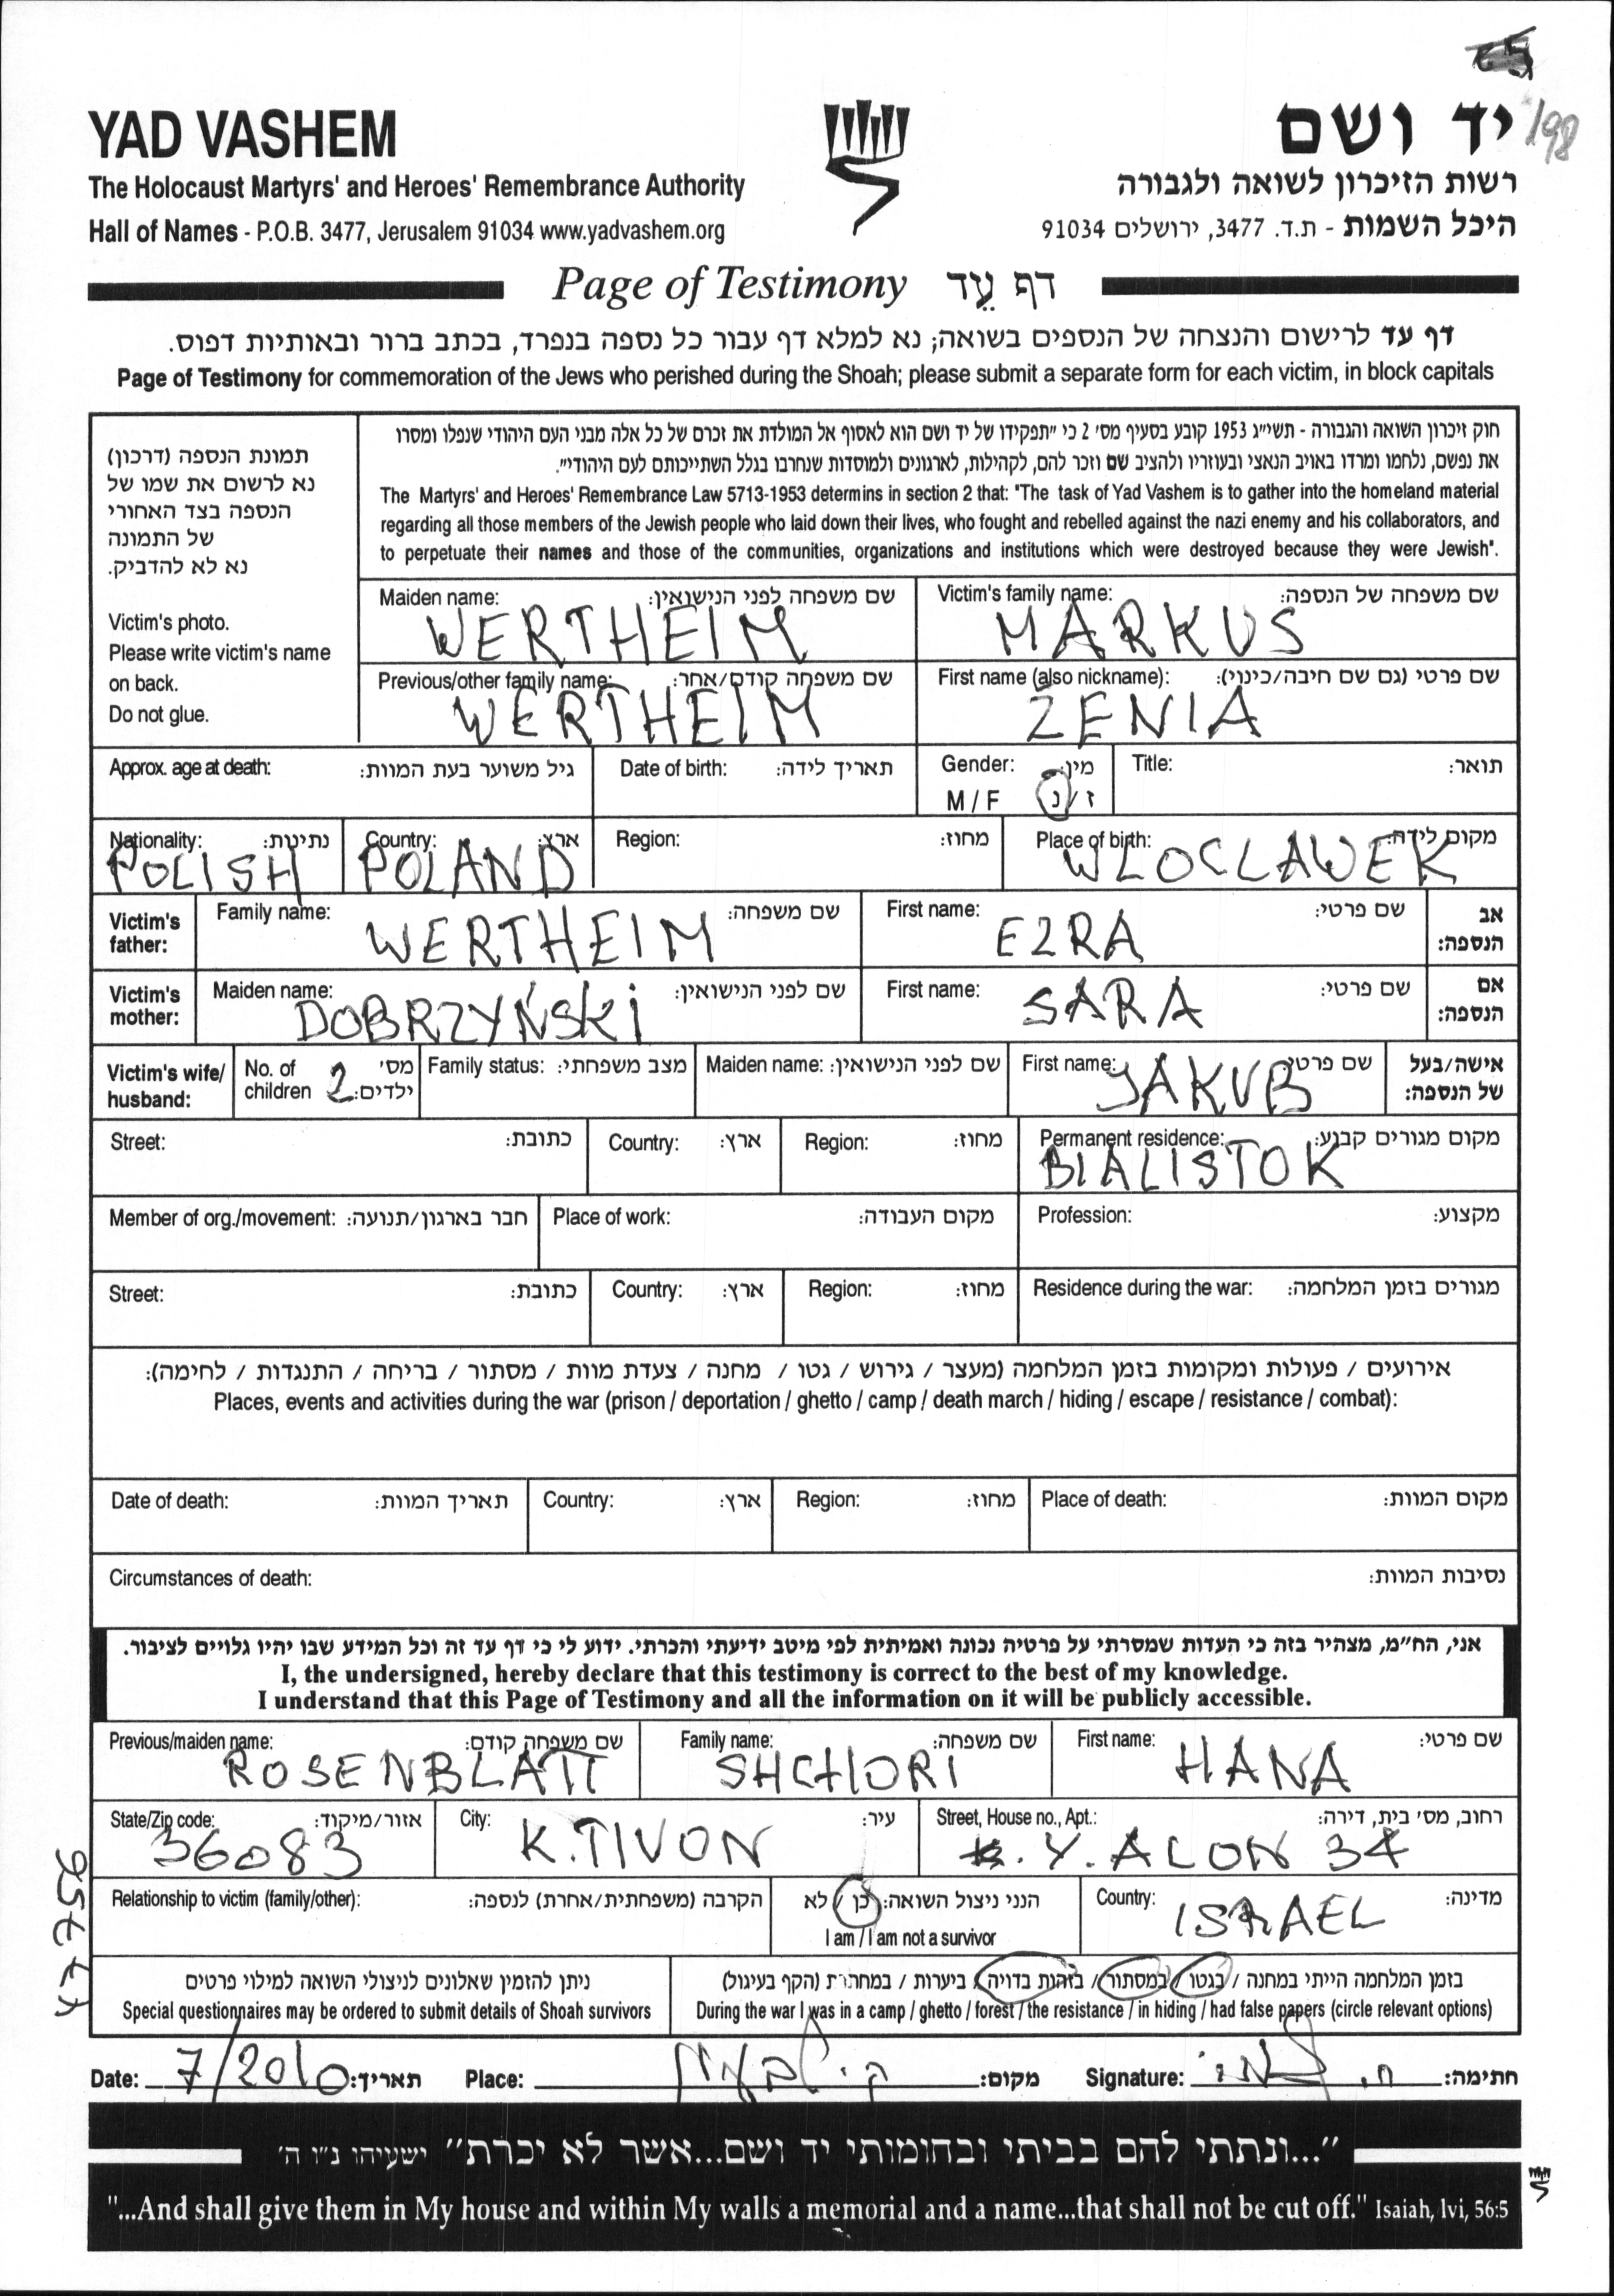 198
YAD VASHEM
יד ושם
The Holocaust Martyrs' and Heroes' Remembrance Authority
רשות הזיכרון לשואה ולגבורה
Hall of Names - P.O.B. 3477, Jerusalem 91034 www.yadvashem.org
היכל השמות - ת.ד. 3477, ירושלים 91034
Page of Testimony דף עֵד
דף עד לרישום והנצחה של הנספים בשואה; נא למלא דף עבור כל נספה בנפרד, בכתב ברור ובאותיות דפוס.
Page of Testimony for commemoration of the Jews who perished during the Shoah; please submit a separate form for each victim, in block capitals
חוק זיכרון השואה והגבורה - תשי״ג 1953 קובע בסעיף מס׳ 2 כי ״תפקידו של יד ושם הוא לאסוף אל המולדת את זכרם של כל אלה מבני העם היהודי שנפלו ומסרו
את נפשם, נלחמו ומרדו באויב הנאצי ובעוזריו ולהציב שם וזכר להם, לקהילות, לארגונים ולמוסדות שנחרבו בגלל השתייכותם לעם היהודי״.
The Martyrs' and Heroes' Remembrance Law 5713-1953 determins in section 2 that: "The task of Yad Vashem is to gather into the homeland material
regarding all those members of the Jewish people who laid down their lives, who fought and rebelled against the nazi enemy and his collaborators, and
to perpetuate their names and those of the communities, organizations and institutions which were destroyed because they were Jewish".
תמונת הנספה (דרכון)
נא לרשום את שמו של
הנספה בצד האחורי
של התמונה
נא לא להדביק.
Victim's photo.
Please write victim's name
on back.
Do not glue.
Maiden name: שם משפחה לפני הנישואין:
WERTHEIM
Victim's family name: שם משפחה של הנספה:
MARKUS
Previous/other family name: שם משפחה קודם/אחר:
WERTHEIM
First name (also nickname): שם פרטי (גם שם חיבה/כינוי):
ZENIA
Approx. age at death: גיל משוער בעת המוות:
Date of birth: תאריך לידה:
Gender: מין:
M / F ז / נ
Title: תואר:
Nationality: נתינות:
POLISH
Country: ארץ:
POLAND
Region: מחוז:
Place of birth: מקום לידה:
WLOCLAWEK
Victim's father:
Family name: שם משפחה:
WERTHEIM
First name: שם פרטי:
EZRA
אב הנספה:
Victim's mother:
Maiden name: שם לפני הנישואין:
DOBRZYŃSKi
First name: שם פרטי:
SARA
אם הנספה:
Victim's wife/ husband:
No. of children 2 מס׳ ילדים:
Family status: מצב משפחתי:
Maiden name: שם לפני הנישואין:
First name: שם פרטי:
JAKUB
אישה/בעל של הנספה:
Street: כתובת:
Country: ארץ:
Region: מחוז:
Permanent residence: מקום מגורים קבוע:
BIALISTOK
Member of org./movement: חבר בארגון/תנועה:
Place of work: מקום העבודה:
Profession: מקצוע:
Street: כתובת:
Country: ארץ:
Region: מחוז:
Residence during the war: מגורים בזמן המלחמה:
אירועים / פעולות ומקומות בזמן המלחמה (מעצר / גירוש / גטו / מחנה / צעדת מוות / מסתור / בריחה / התנגדות / לחימה):
Places, events and activities during the war (prison / deportation / ghetto / camp / death march / hiding / escape / resistance / combat):
Date of death: תאריך המוות:
Country: ארץ:
Region: מחוז:
Place of death: מקום המוות:
Circumstances of death: נסיבות המוות:
אני, הח״מ, מצהיר בזה כי העדות שמסרתי על פרטיה נכונה ואמיתית לפי מיטב ידיעתי והכרתי. ידוע לי כי דף עד זה וכל המידע שבו יהיו גלויים לציבור.
I, the undersigned, hereby declare that this testimony is correct to the best of my knowledge.
I understand that this Page of Testimony and all the information on it will be publicly accessible.
Previous/maiden name: שם משפחה קודם:
ROSENBLATT
Family name: שם משפחה:
SHCHORI
First name: שם פרטי:
HANA
State/Zip code: אזור/מיקוד:
36083
City: עיר:
K.TIVON
Street, House no., Apt.: רחוב, מס׳ בית, דירה:
Y. ALON 34
Relationship to victim (family/other): הקרבה (משפחתית/אחרת) לנספה:
הנני ניצול השואה: כן / לא
I am / I am not a survivor
Country: מדינה:
ISRAEL
ניתן להזמין שאלונים לניצולי השואה למילוי פרטים
Special questionnaires may be ordered to submit details of Shoah survivors
בזמן המלחמה הייתי במחנה / בגטו / במסתור / בזהות בדויה / ביערות / במחתרת (הקף בעיגול)
During the war I was in a camp / ghetto / forest / the resistance / in hiding / had false papers (circle relevant options)
Date: 7/2010 תאריך:
Place: ק. טבעון מקום:
Signature: חתימה:
״...ונתתי להם בביתי ובחומותי יד ושם...אשר לא יכרת״ ישעיהו נ״ו ה׳
"...And shall give them in My house and within My walls a memorial and a name...that shall not be cut off." Isaiah, lvi, 56:5